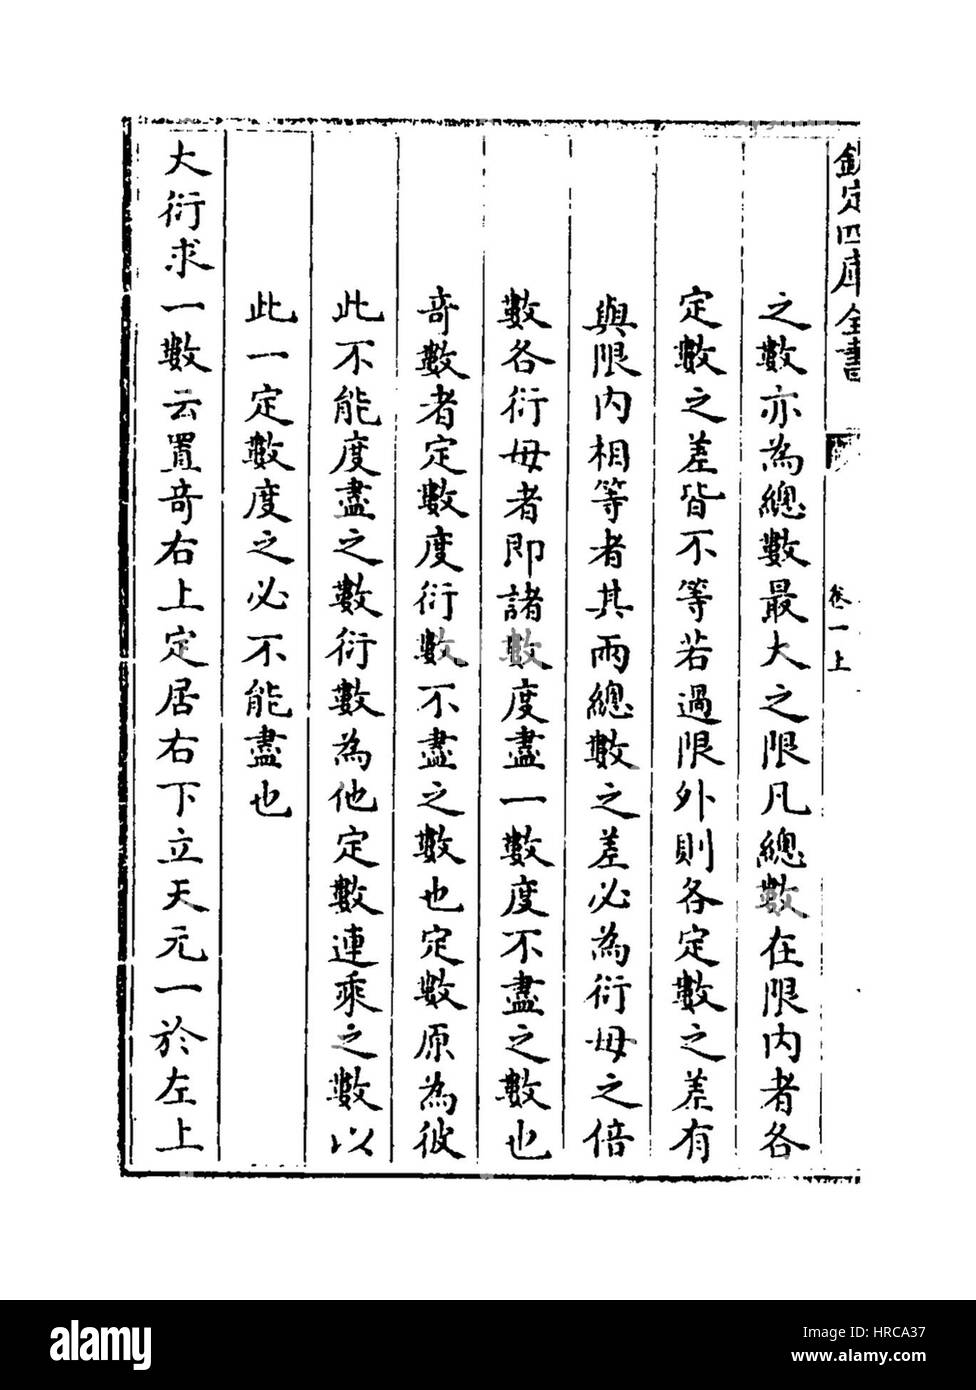 欽定四庫全書
卷一上
之數亦為總數最大之限凡總數在限內者各
定數之差皆不等若過限外則各定數之差有
與限內相等者其兩總數之差必為衍母之倍
數各衍母者即諸數度盡一數度不盡之數也
奇數者定數度衍數不盡之數也定數原為彼
此不能度盡之數衍數為他定數連乘之數以
此一定數度之必不能盡也
大衍求一數云置奇右上定居右下立天元一於左上
alamy
Image ID: HRCA37
www.alamy.com